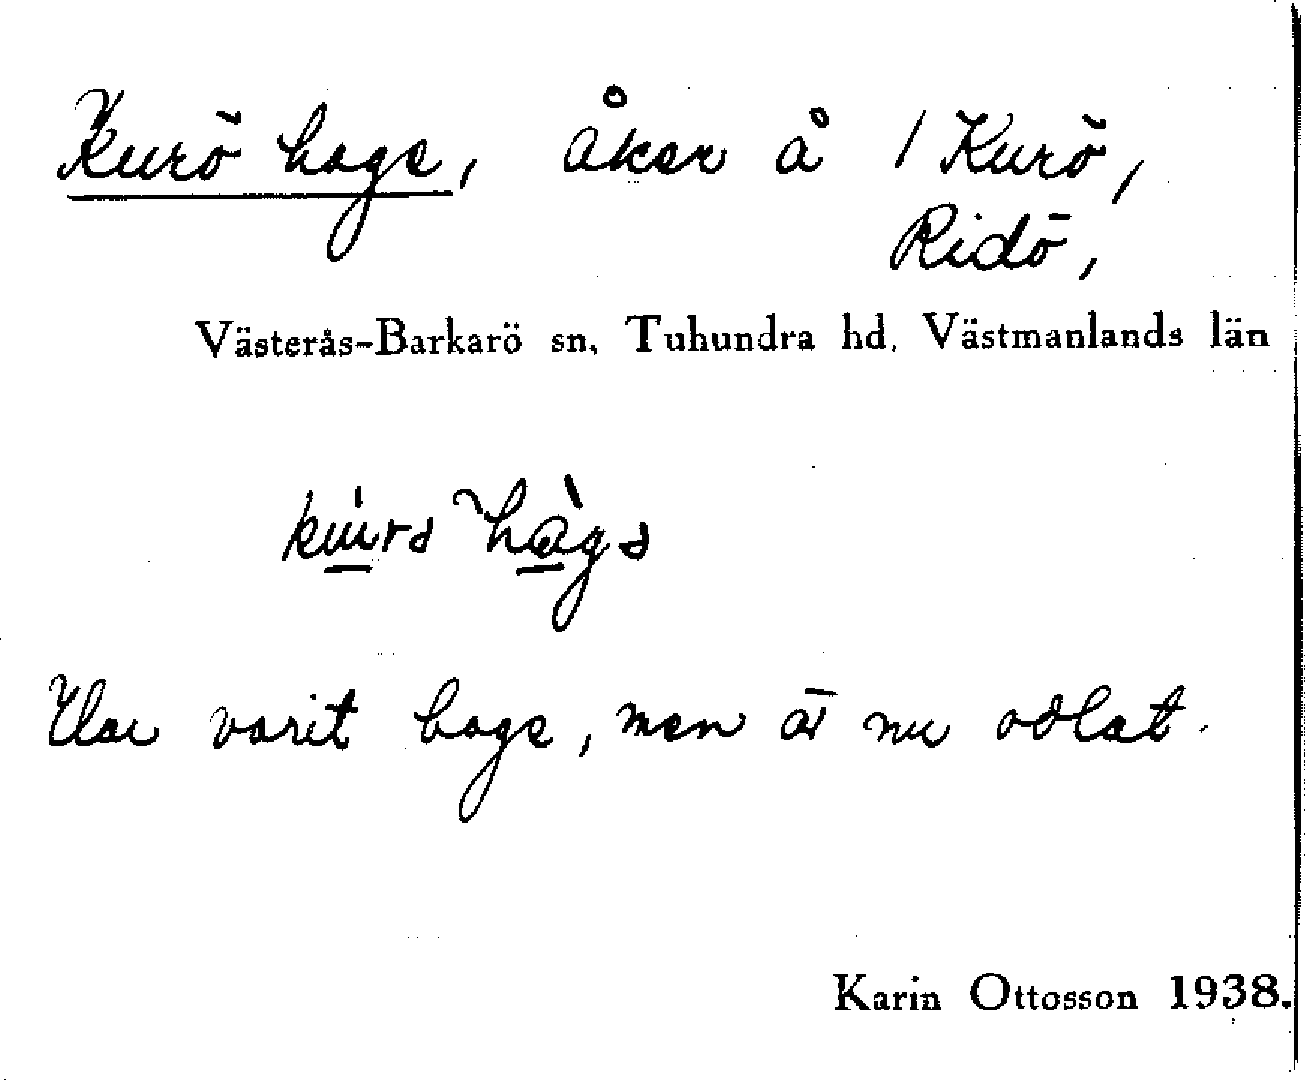 Kurö hage, åker å 1 Kurö,
Ridö,
Västerås-Barkarö sn, Tuhundra hd, Västmanlands län
Har varit hage, men är nu odlat.
Karin Ottosson 1938.